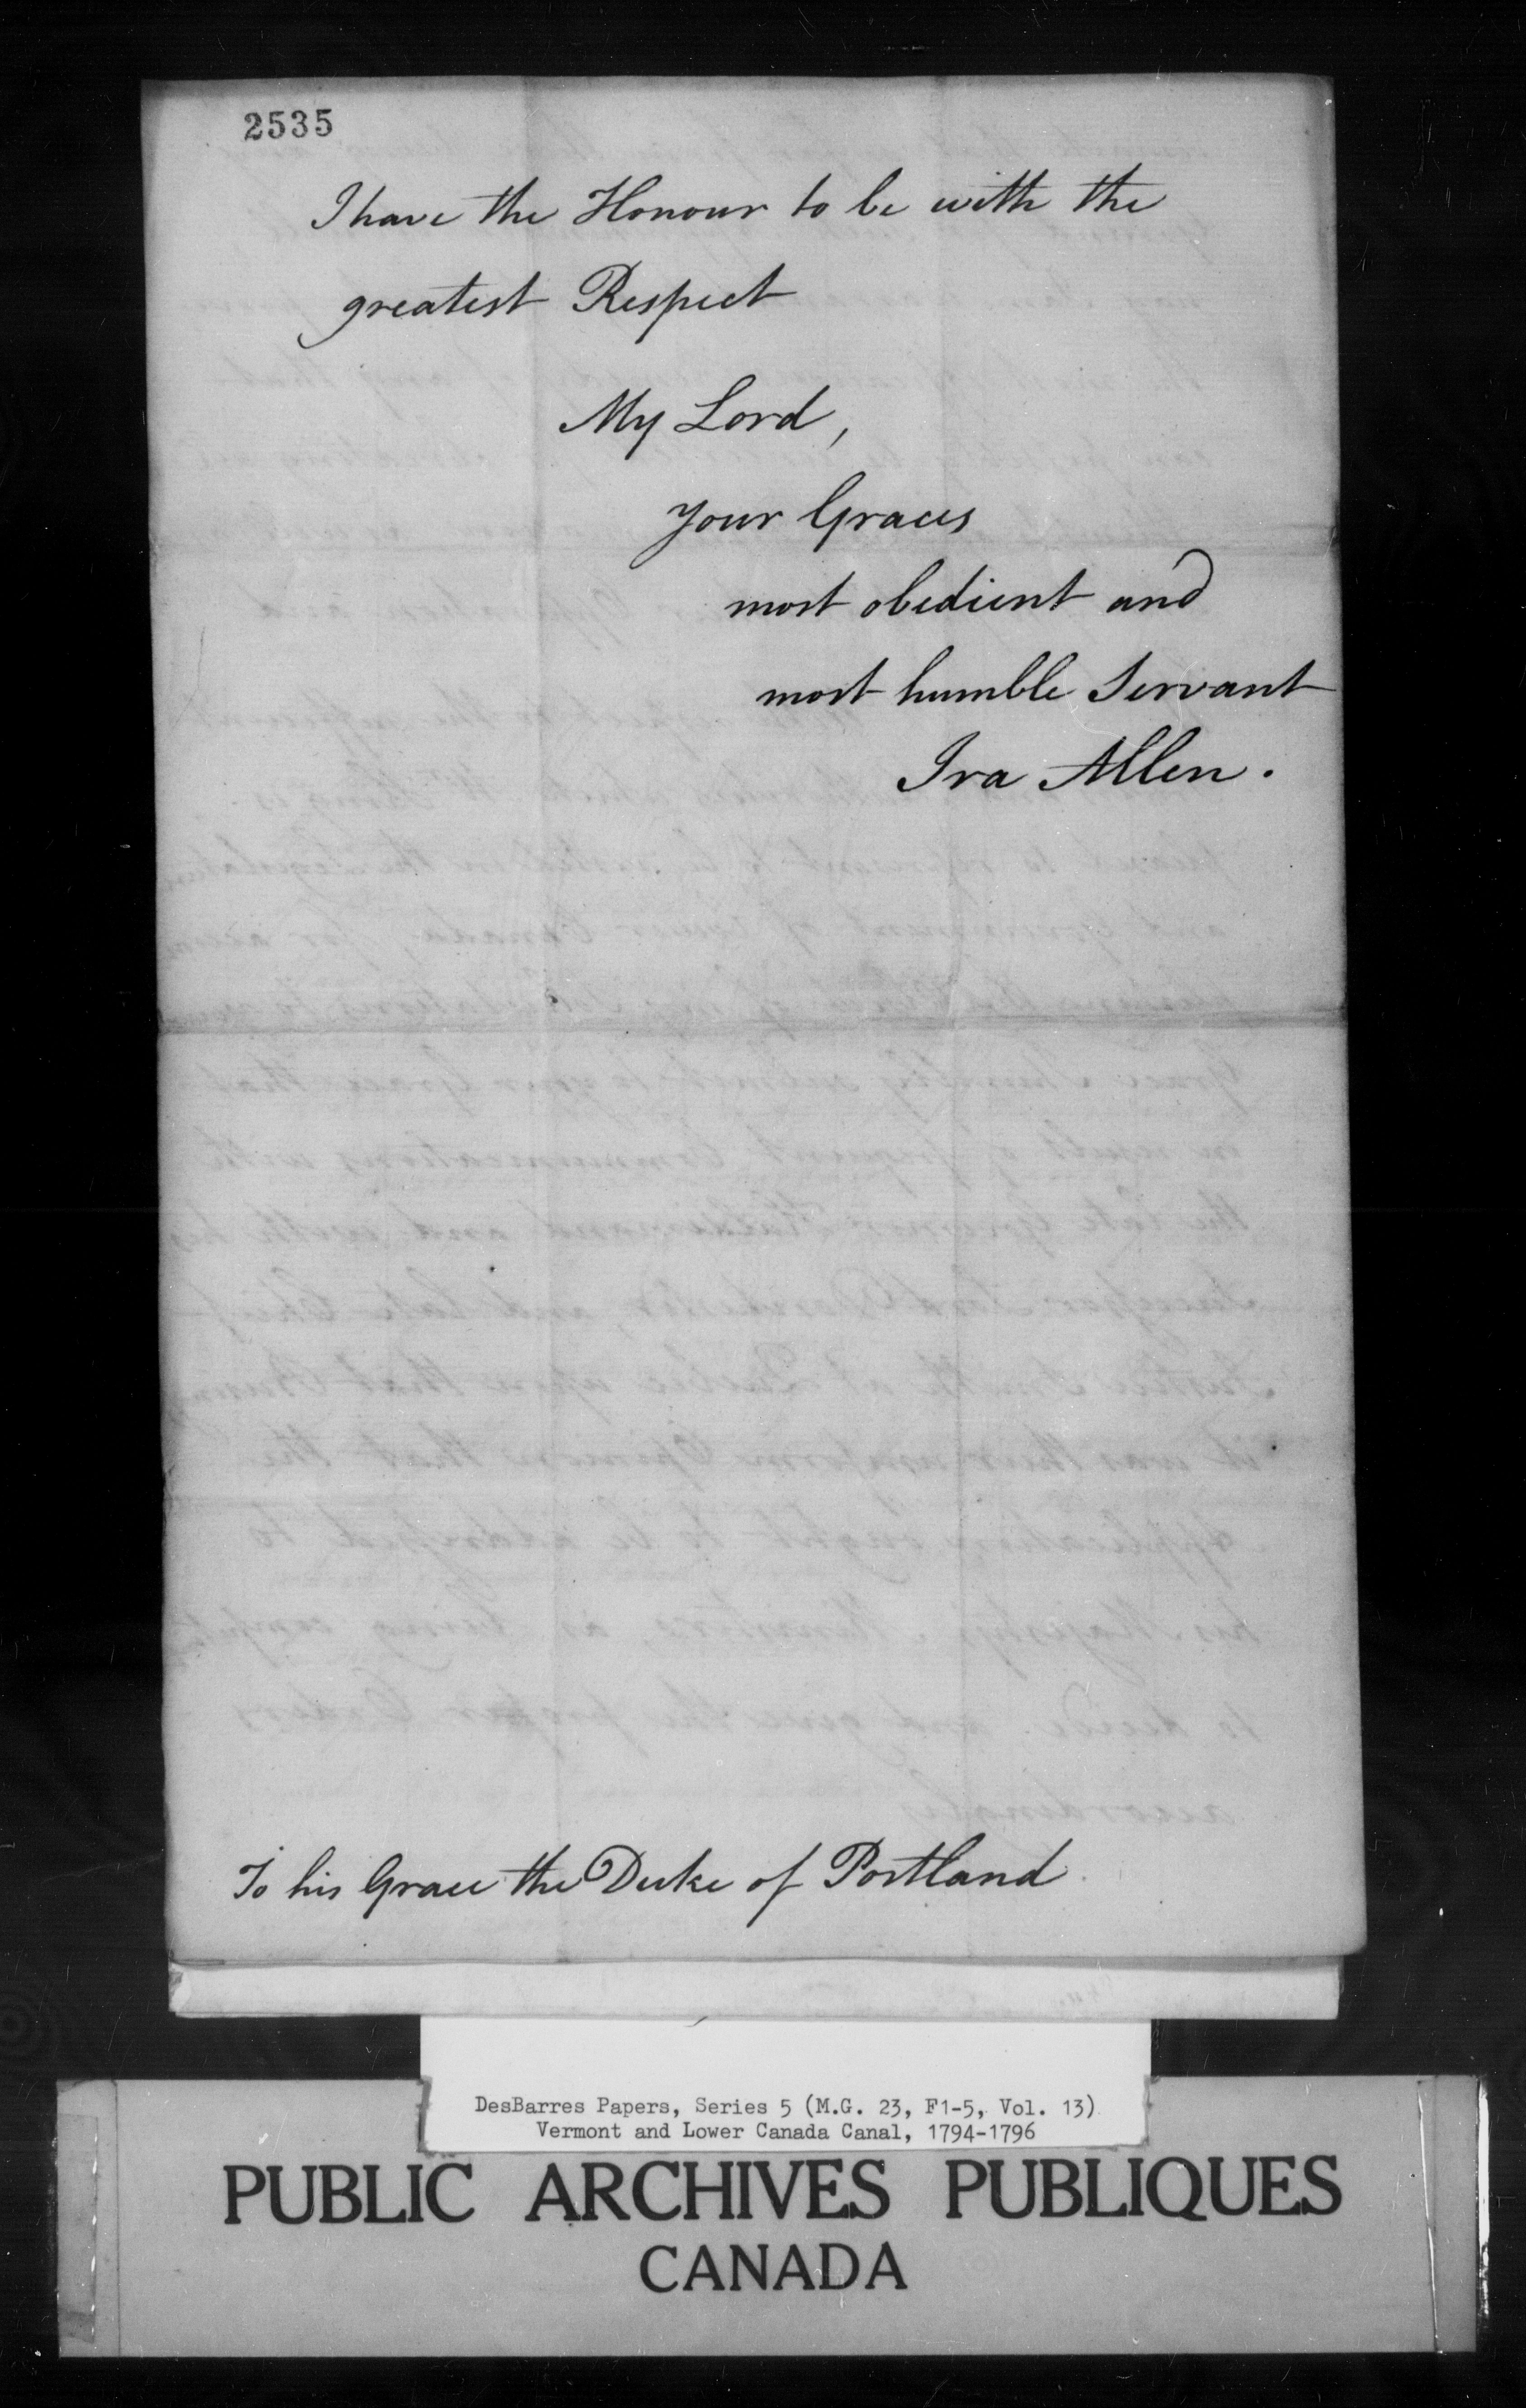 2535
I have the Honour to be with the
greatest Respect
My Lord,
Your Graces
most obedient and
most humble Servant
Ira Allen.
To his Grace the Duke of Portland
DesBarres Papers, Series 5 (M.G. 23, F1-5, Vol. 13)
Vermont and Lower Canada Canal, 1794-1796
PUBLIC ARCHIVES PUBLIQUES
CANADA